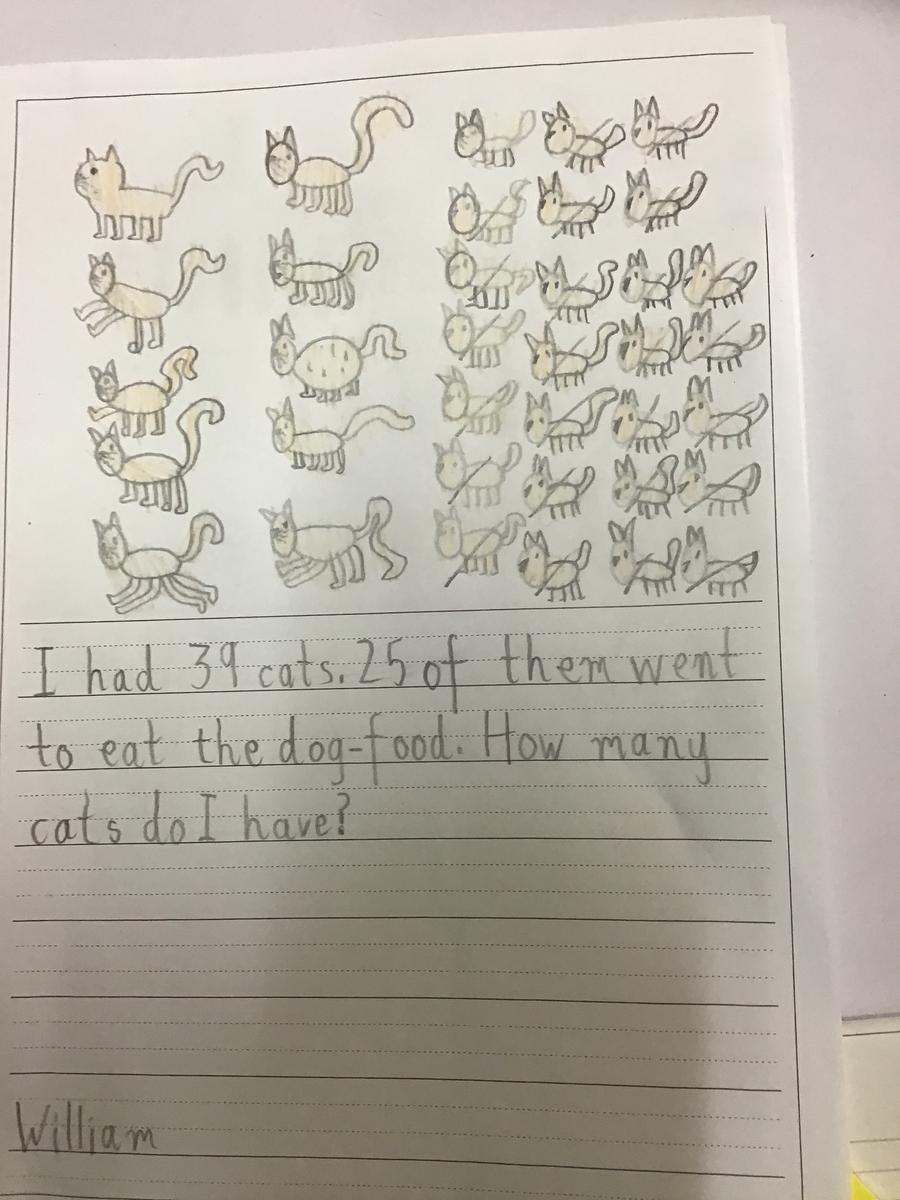 I had 39 cats. 25 of them went
to eat the dog-food. How many
cats do I have?
William